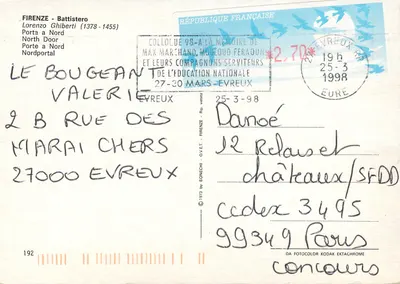 FIRENZE - Battistero
Lorenzo Ghiberti (1378 - 1455)
Porta a Nord
North Door
Porte a Nord
Nordportal
RÉPUBLIQUE FRANÇAISE
*2,70*
COLLOQUE
MAX MARCHAND, MOULOUD FERAOUN
ET LEURS COMPAGNONS SERVITEURS
DE L'EDUCATION NATIONALE
27-30 MARS-EVREUX
EVREUX 25-3-98
EVREUX
19H
25-3
1998
EURE
LE BOUGEANT
VALERIE
2 B RUE DES
MARAI CHERS
27000 EVREUX
Danoé
12 Relais et
châteaux/SFDD
cedex 3495
99349 Paris
concours
192
DA FOTOCOLOR KODAK EKTACHROME